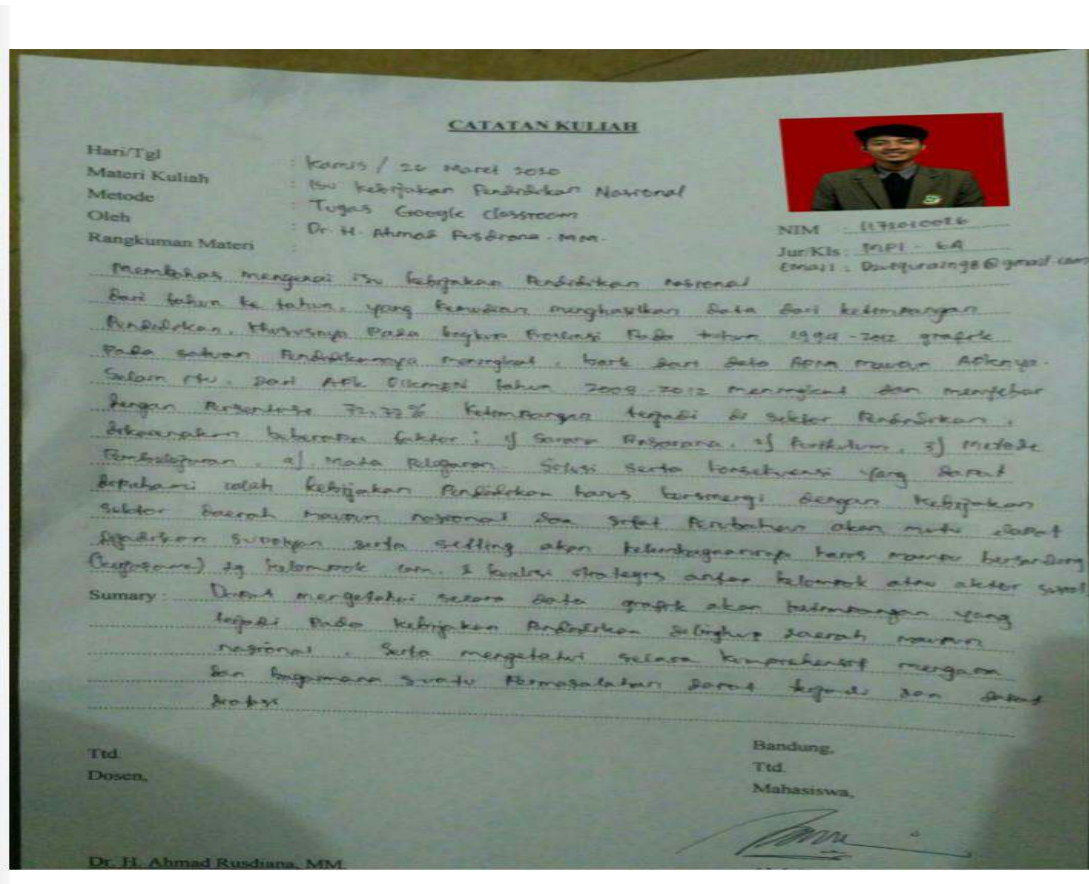 CATATAN KULIAH
Hari/Tgl : Kamis / 26 Maret 2020
Materi Kuliah : Isu kebijakan Pendidikan Nasional
Metode : Tugas Google classroom
Oleh : Dr. H. Ahmad Rusdiana. MM.
NIM : 1171010026
Rangkuman Materi :
Jur/Kls : MPI - 6A
Email : @gmail.com
Membahas mengenai isu kebijakan Pendidikan Nasional
Dari tahun ke tahun, yang kemudian menghasilkan data dari ketimpangan
Pendidikan, khususnya Pada lingkup Provinsi Pada tahun 1994-2012 grafik
Pada satuan Pendidikannya meningkat, baik dari data APM maupun APKnya.
Selain itu, Dari APK DIKMEN tahun 2009-2012 meningkat dan menyebar
dengan Persentase 72,77% Ketimpangan terjadi di sektor Pendidikan,
dikarenakan beberapa faktor : 1) Sarana Prasarana, 2) Kurikulum, 3) Metode
Pembelajaran, 4). Mata Pelajaran. Solusi serta konsekuensi yang dapat
dipahami ialah kebijakan Pendidikan harus bersinergi dengan kebijakan
sektor daerah maupun nasional dan sifat Perubahan akan mutu dapat
dijadikan serta setting akan kelembagaannya harus mampu bersanding
(kerjasama) dg kelompok lain. & koalisi strategis antar kelompok atau aktor
Sumary : Dapat mengetahui secara data grafik akan ketimpangan yang
terjadi Pada kebijakan Pendidikan dilingkup daerah maupun
nasional. Serta mengetahui secara komprehensif mengapa
dan bagaimana suatu Permasalahan dapat terjadi dan dapat
Ttd.
Dosen,
Bandung,
Ttd.
Mahasiswa,
Dr. H. Ahmad Rusdiana, MM.